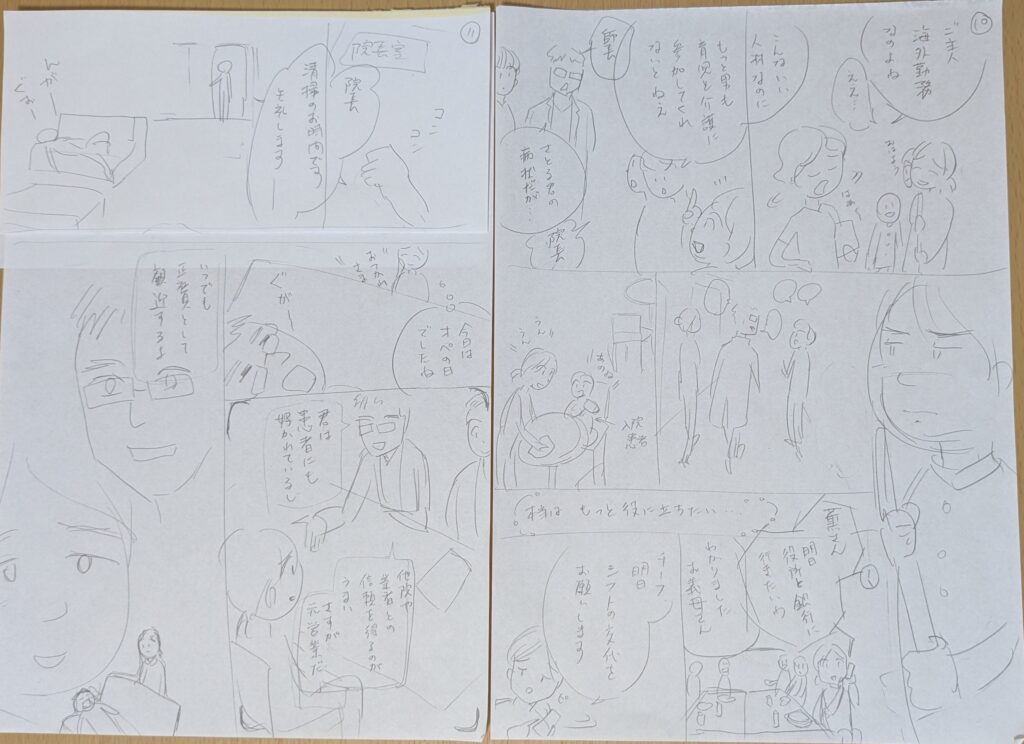 10
ご主人
海外勤務
なのよね
ええ…
こんないい
人材なのに
もっと男も
育児や介護に
参加してくれ
ないとねえ
さとる君の
病状だが…
院長
えーん
えん
入院
患者
本当は もっと役に立ちたい…
薫さん
明日
役所と銀行に
行きたいわ
わかりました
お義母さん
チーフ
明日
シフトの交代を
お願いします
11
院長室
コン
コン
院長
清掃のお時間です
失礼します
んがー
ぐおー
今日は
オペの日
でしたね
ぐがー
君は
患者にも
好かれているし
他院や
業者との
信頼を得るのが
うまい
さすが
元営業だ
いつでも
正社員として
歓迎するよ